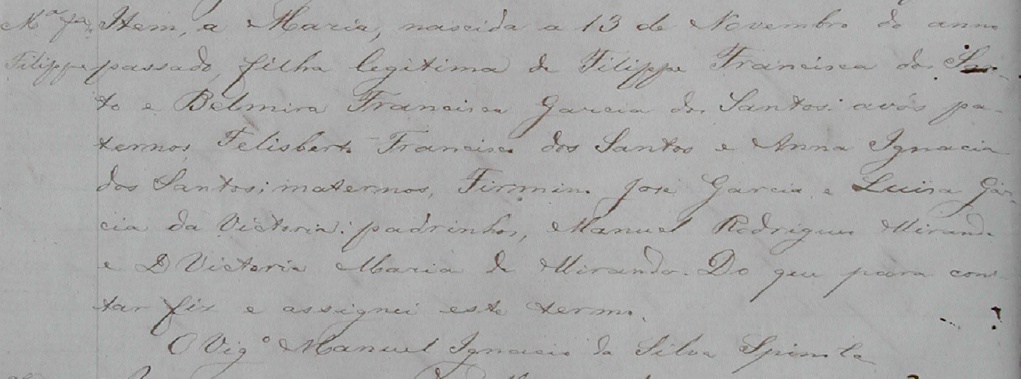 Mª fª Item, a Maria, nascida a 13 de Novembro do anno
Filippe passado, filha legitima de Filippe Francisco do San-
to e Belmira Francisca Garcia dos Santos: avós pa-
ternos, Felisberto Francisco dos Santos e Anna Ignacia
dos Santos; maternos, Firmino José Garcia e Luisa Gar-
cia da Victoria: padrinhos, Manuel Rodrigues Miranda
e D Victoria Maria de Miranda. Do que para cons-
tar fiz e assignei este termo.
O Vigº Manuel Ignacio da Silva Spinola